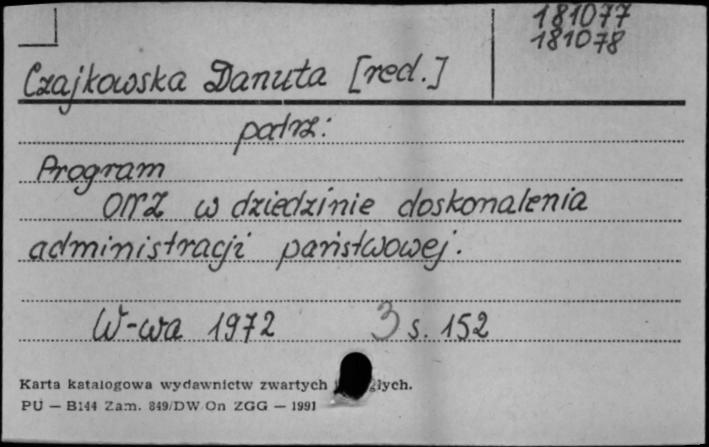 181077
181078
Czajkowska Danuta [red.]
patrz:
Program
ONZ w dziedzinie doskonalenia
administracji państwowej.
W-wa 1972 3 s. 152
Karta katalogowa wydawnictw zwartych
PU — B144 Zam. 849/DW On ZGG — 1991